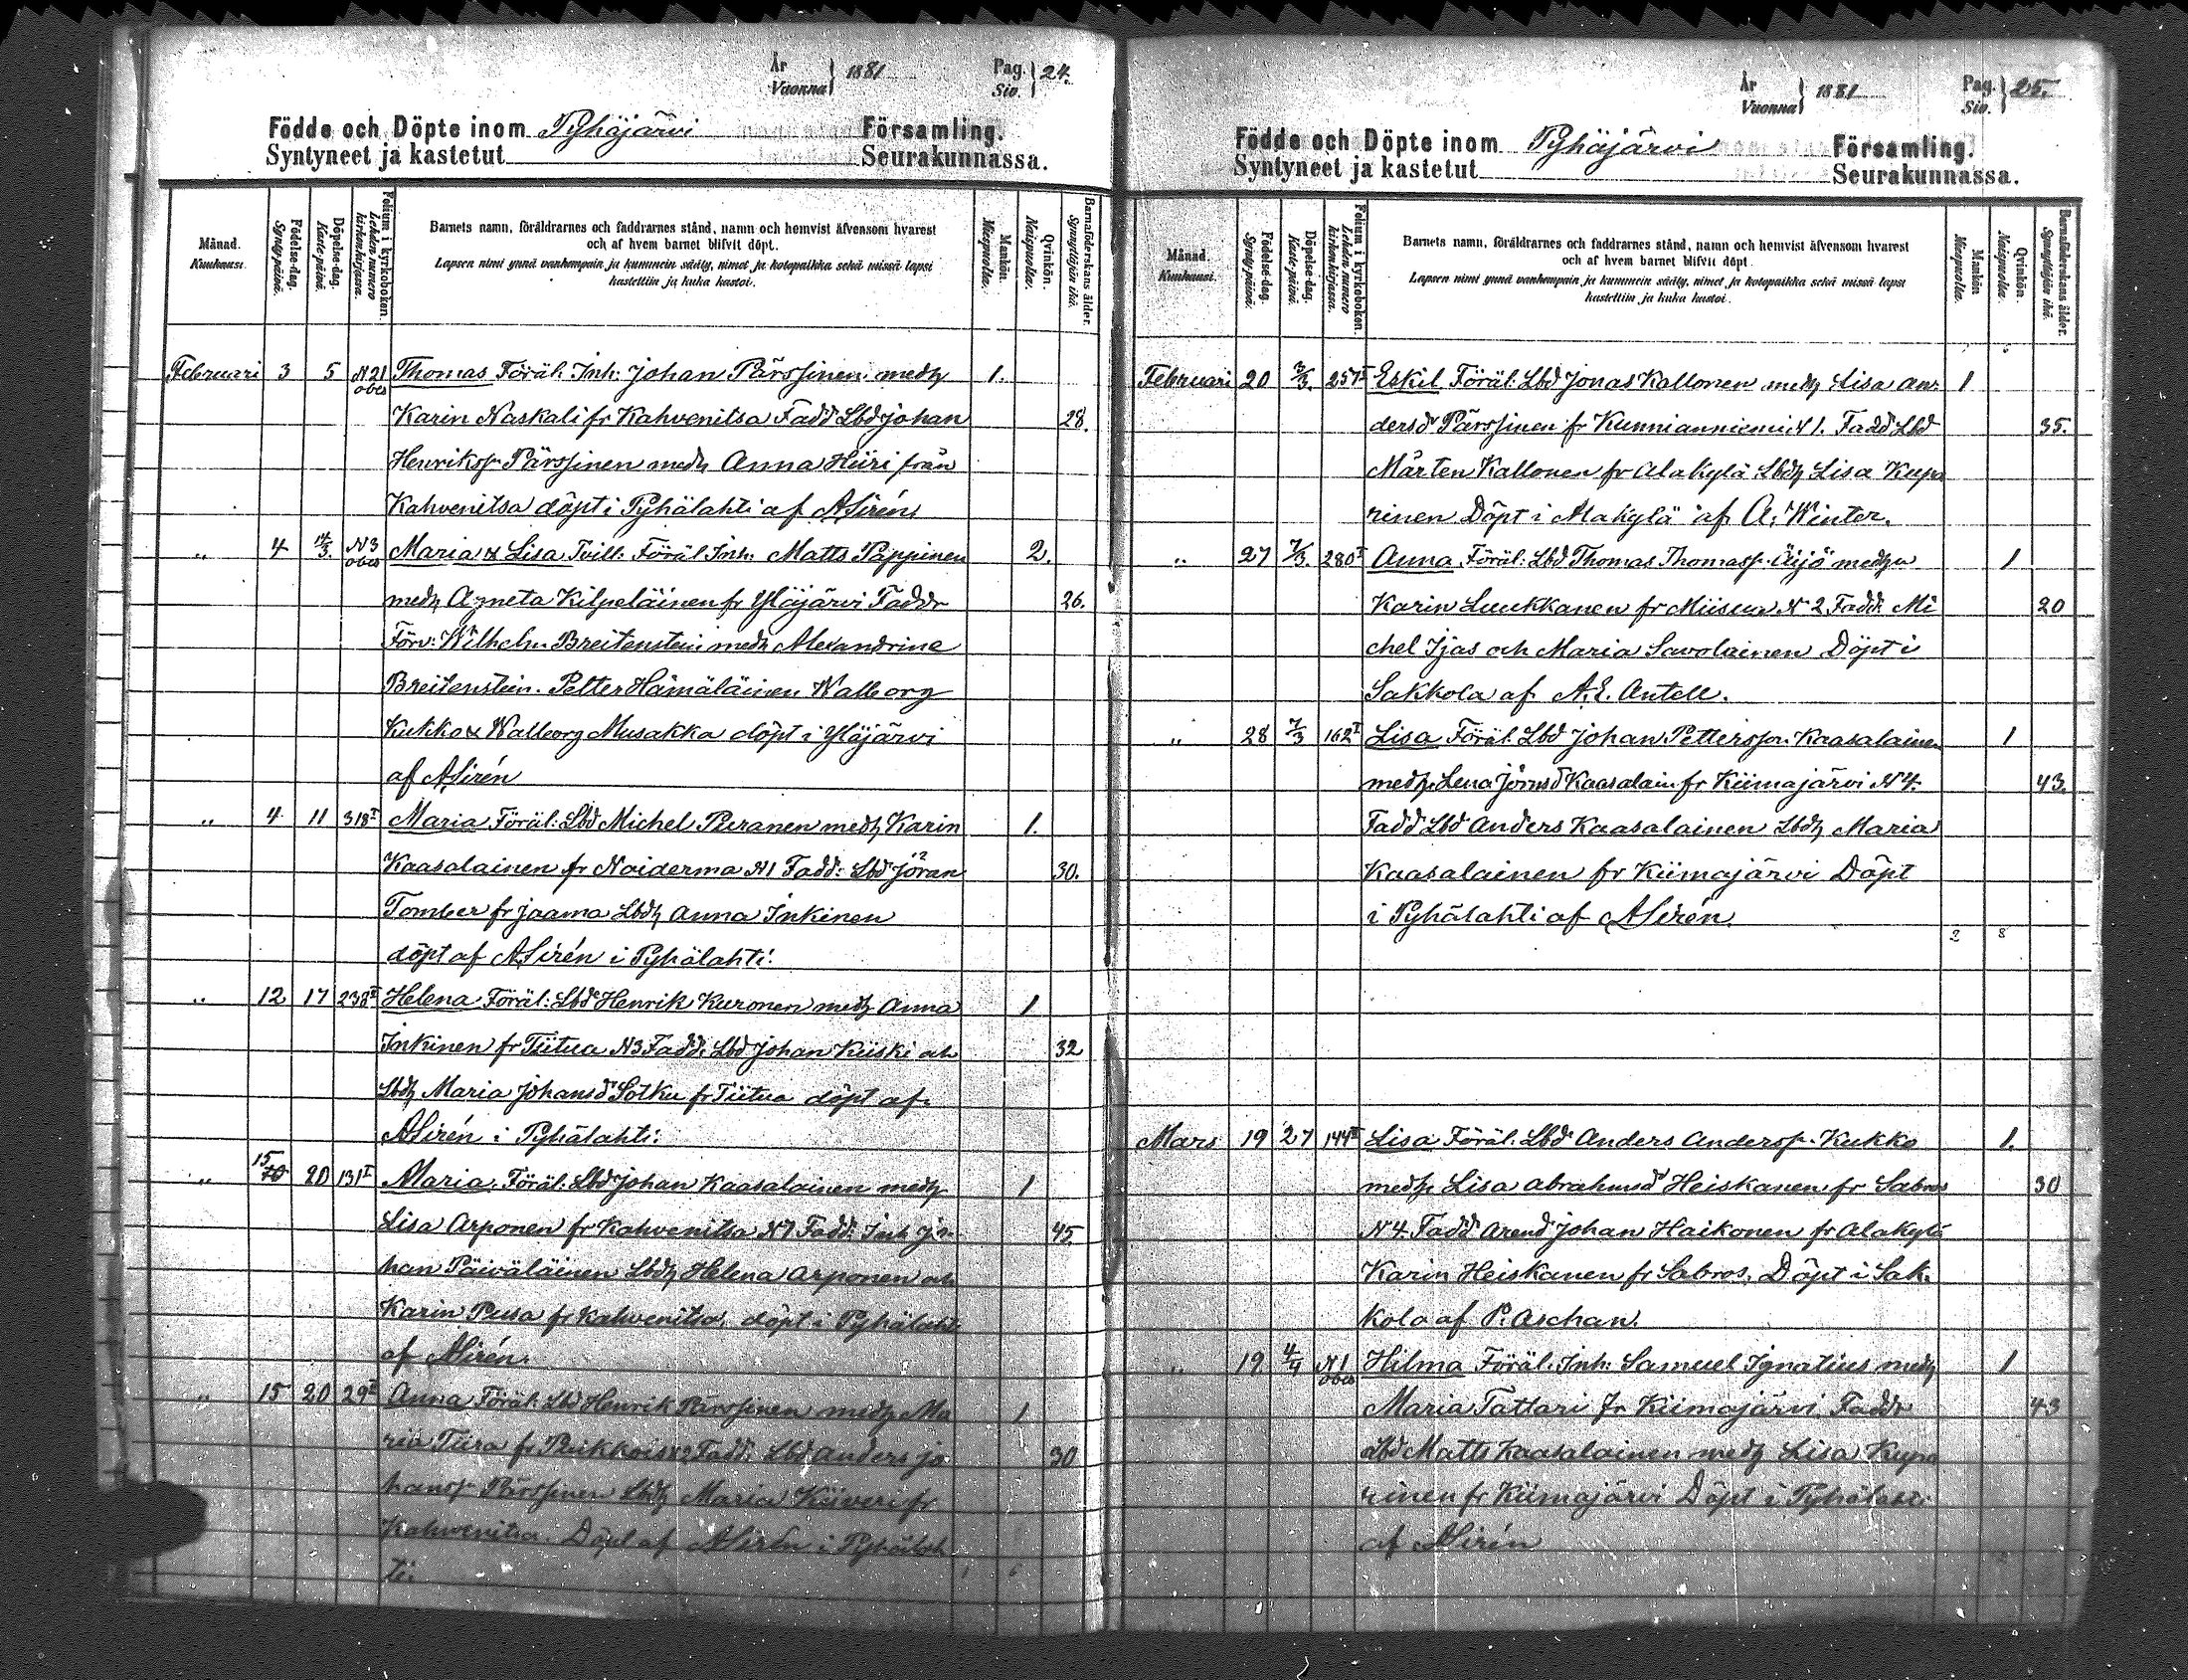 År
Vuonna } 1881
Pag.
Siv. } 24.
Födde och Döpte inom Pyhäjärvi Församling.
Syntyneet ja kastetut Seurakunnassa.
Månad.
Kuukausi.
Födelse-dag.
Synty-päivä.
Döpelse-dag.
Kaste-päivä.
Folium i kyrkoboken.
Lehden numero kirkonkirjassa.
Barnets namn, föräldrarnes och faddrarnes stånd, namn och hemvist äfvensom hvarest
och af hvem barnet blifvit döpt.
Lapsen nimi ynnä vanhempain ja kummein sääty, nimet ja kotopaikka sekä missä lapsi
kastettiin ja kuka kastoi.
Mankön.
Miespuolta.
Qvinkön.
Naispuolta.
Barnaföderskans ålder.
Synnyttäjän ikä.
Februari 3 5 N21 obes Thomas Föräl: Inh: Johan Pärssinen medh 1.
Karin Naskali fr Kahvenitsa Fadd Lbd Johan 28.
Henrikss: Pärssinen medh Anna Hiiri från
Kahvenitsa döpt i Pyhälahti af A Sirén
" 4 14/3. N3 obes Maria & Lisa Tvill: Föräl Inh: Matts Pappinen 2.
medh Agneta Kilpeläinen fr Yläjärvi Faddr 26.
Förv: Wilhelm Breitenstein medh Alexandrine
Breitenstein. Petter Hämäläinen Walborg
Kukko & Walborg Musakka döpt i Yläjärvi
af A Sirén
" 4 11 318I Maria Föräl: Lbd Michel Peranen medh Karin 1.
Kaasalainen fr Noiderma N1 Fadd: Lbd Jöran 30.
Tomber fr Jaama Lbdh Anna Inkinen
döpt af A Sirén i Pyhälahti.
" 12 17 238II Helena Föräl: Lbd Henrik Kuronen medh Anna 1
Inkinen fr Tiitua N3 Fadd: Lbd Johan Kiiski och 32
Lbdh Maria Johansd Sotku fr Tiitua döpt af
A Sirén i Pyhälahti:
" 15 20 20 131I Maria. Föräl: Lbd Johan Kaasalainen medh 1
Lisa Arponen fr Kahvenitsa N7 Fadd: Inh Jo- 45.
han Päiväläinen Lbdh Helena Arponen och
Karin Pusa fr Kahvenitsa, döpt i Pyhälahti
af A Sirén.
" 15 20 29I Anna Föräl: Lbd Henrik Pärssinen medh Ma 1
ria Tiira fr Puikkois N2 Fadd: Lbd Anders Jo 30
hanss: Pärssinen Lbdh Maria Kiiveri fr
Kahvenitsa. Döpt af A Sirén i Pyhälah
ti.
År
Vuonna } 1881
Pag.
Siv. } 25.
Födde och Döpte inom Pyhäjärvi Församling.
Syntyneet ja kastetut Seurakunnassa.
Månad.
Kuukausi.
Födelse-dag.
Synty-päivä.
Döpelse-dag.
Kaste-päivä.
Folium i kyrkoboken.
Lehden numero kirkonkirjassa.
Barnets namn, föräldrarnes och faddrarnes stånd, namn och hemvist äfvensom hvarest
och af hvem barnet blifvit döpt.
Lapsen nimi ynnä vanhempain ja kummein sääty, nimet ja kotopaikka sekä missä lapsi
kastettiin ja kuka kastoi.
Mankön
Miespuolta.
Qvinkön.
Naispuolta.
Barnaföderskans ålder.
Synnyttäjän ikä.
Februari 20 3/3. 257I Eskil Föräl: Lbd Jonas Kallonen medh Lisa An- 1
dersd Pärssinen fr Kunnianniemi N1. Fadd Lbd 35.
Mårten Kallonen fr Alakylä Lbdh Lisa Kupa
rinen Döpt i Alakylä af A. Winter.
" 27 7/3. 280I Anna. Föräl: Lbd Thomas Thomass: Äijö medh 1
Karin Luukkanen fr Miisua N 2 Fadd: Mi 20
chel Ijas och Maria Savolainen Döpt i
Sakkola af A. E. Antell.
" 28 7/3 162I Lisa Föräl: Lbd Johan Petterss: Kaasalainen 1
medh Lena Jörnsd Kaasalain fr Kiimajärvi N4. 43.
Fadd Lbd Anders Kaasalainen Lbdh Maria
Kaasalainen fr Kiimajärvi Döpt
i Pyhälahti af A Sirén.
2 8
Mars 19 27 144II Lisa Föräl: Lbd Anders Anderss: Kukko 1.
medh Lisa Abrahmsd Heiskanen fr Sabros 30
N 4. Fadd Arend Johan Haikonen fr Alakylä
Karin Heiskanen fr Sabros, Döpt i Sak-
kola af P. Aschan.
" 19 4/4 N1 obes Hilma Föräl: Inh: Samuel Ignatius medh 1
Maria Tattari fr Kiimajärvi Faddr 43
Lbd Matts Kaasalainen medh Lisa Kupa
rinen fr Kiimajärvi Döpt i Pyhälahti
af A Sirén